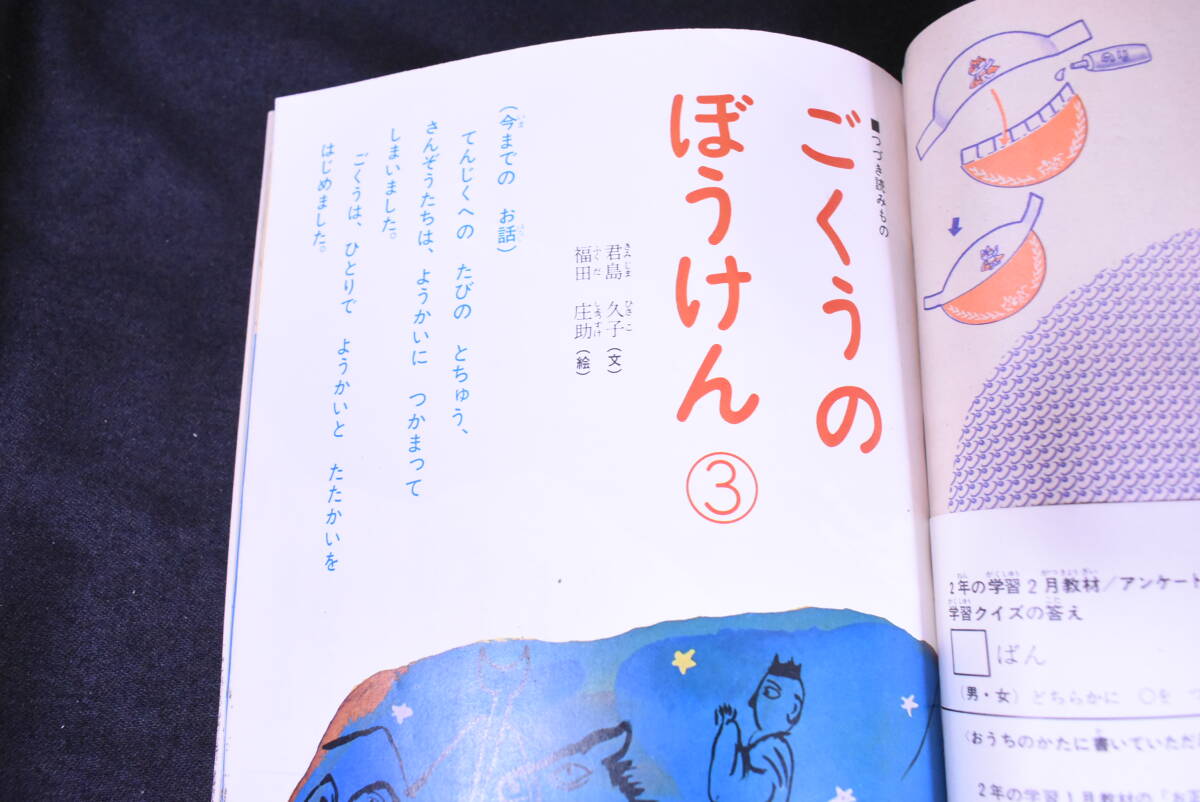 ■つづき読みもの
ごくうの
ぼうけん③
君島 久子(文)
福田 庄助(絵)
(今までの お話)
てんじくへの たびの とちゅう、
さんぞうたちは、ようかいに つかまって
しまいました。
ごくうは、ひとりで ようかいと たたかいを
はじめました。
2年の学習2月教材/アンケート
学習クイズの答え
ばん
(男・女)どちらかに ○を
(おうちのかたに書いていただ
2年の学習1月教材の「お